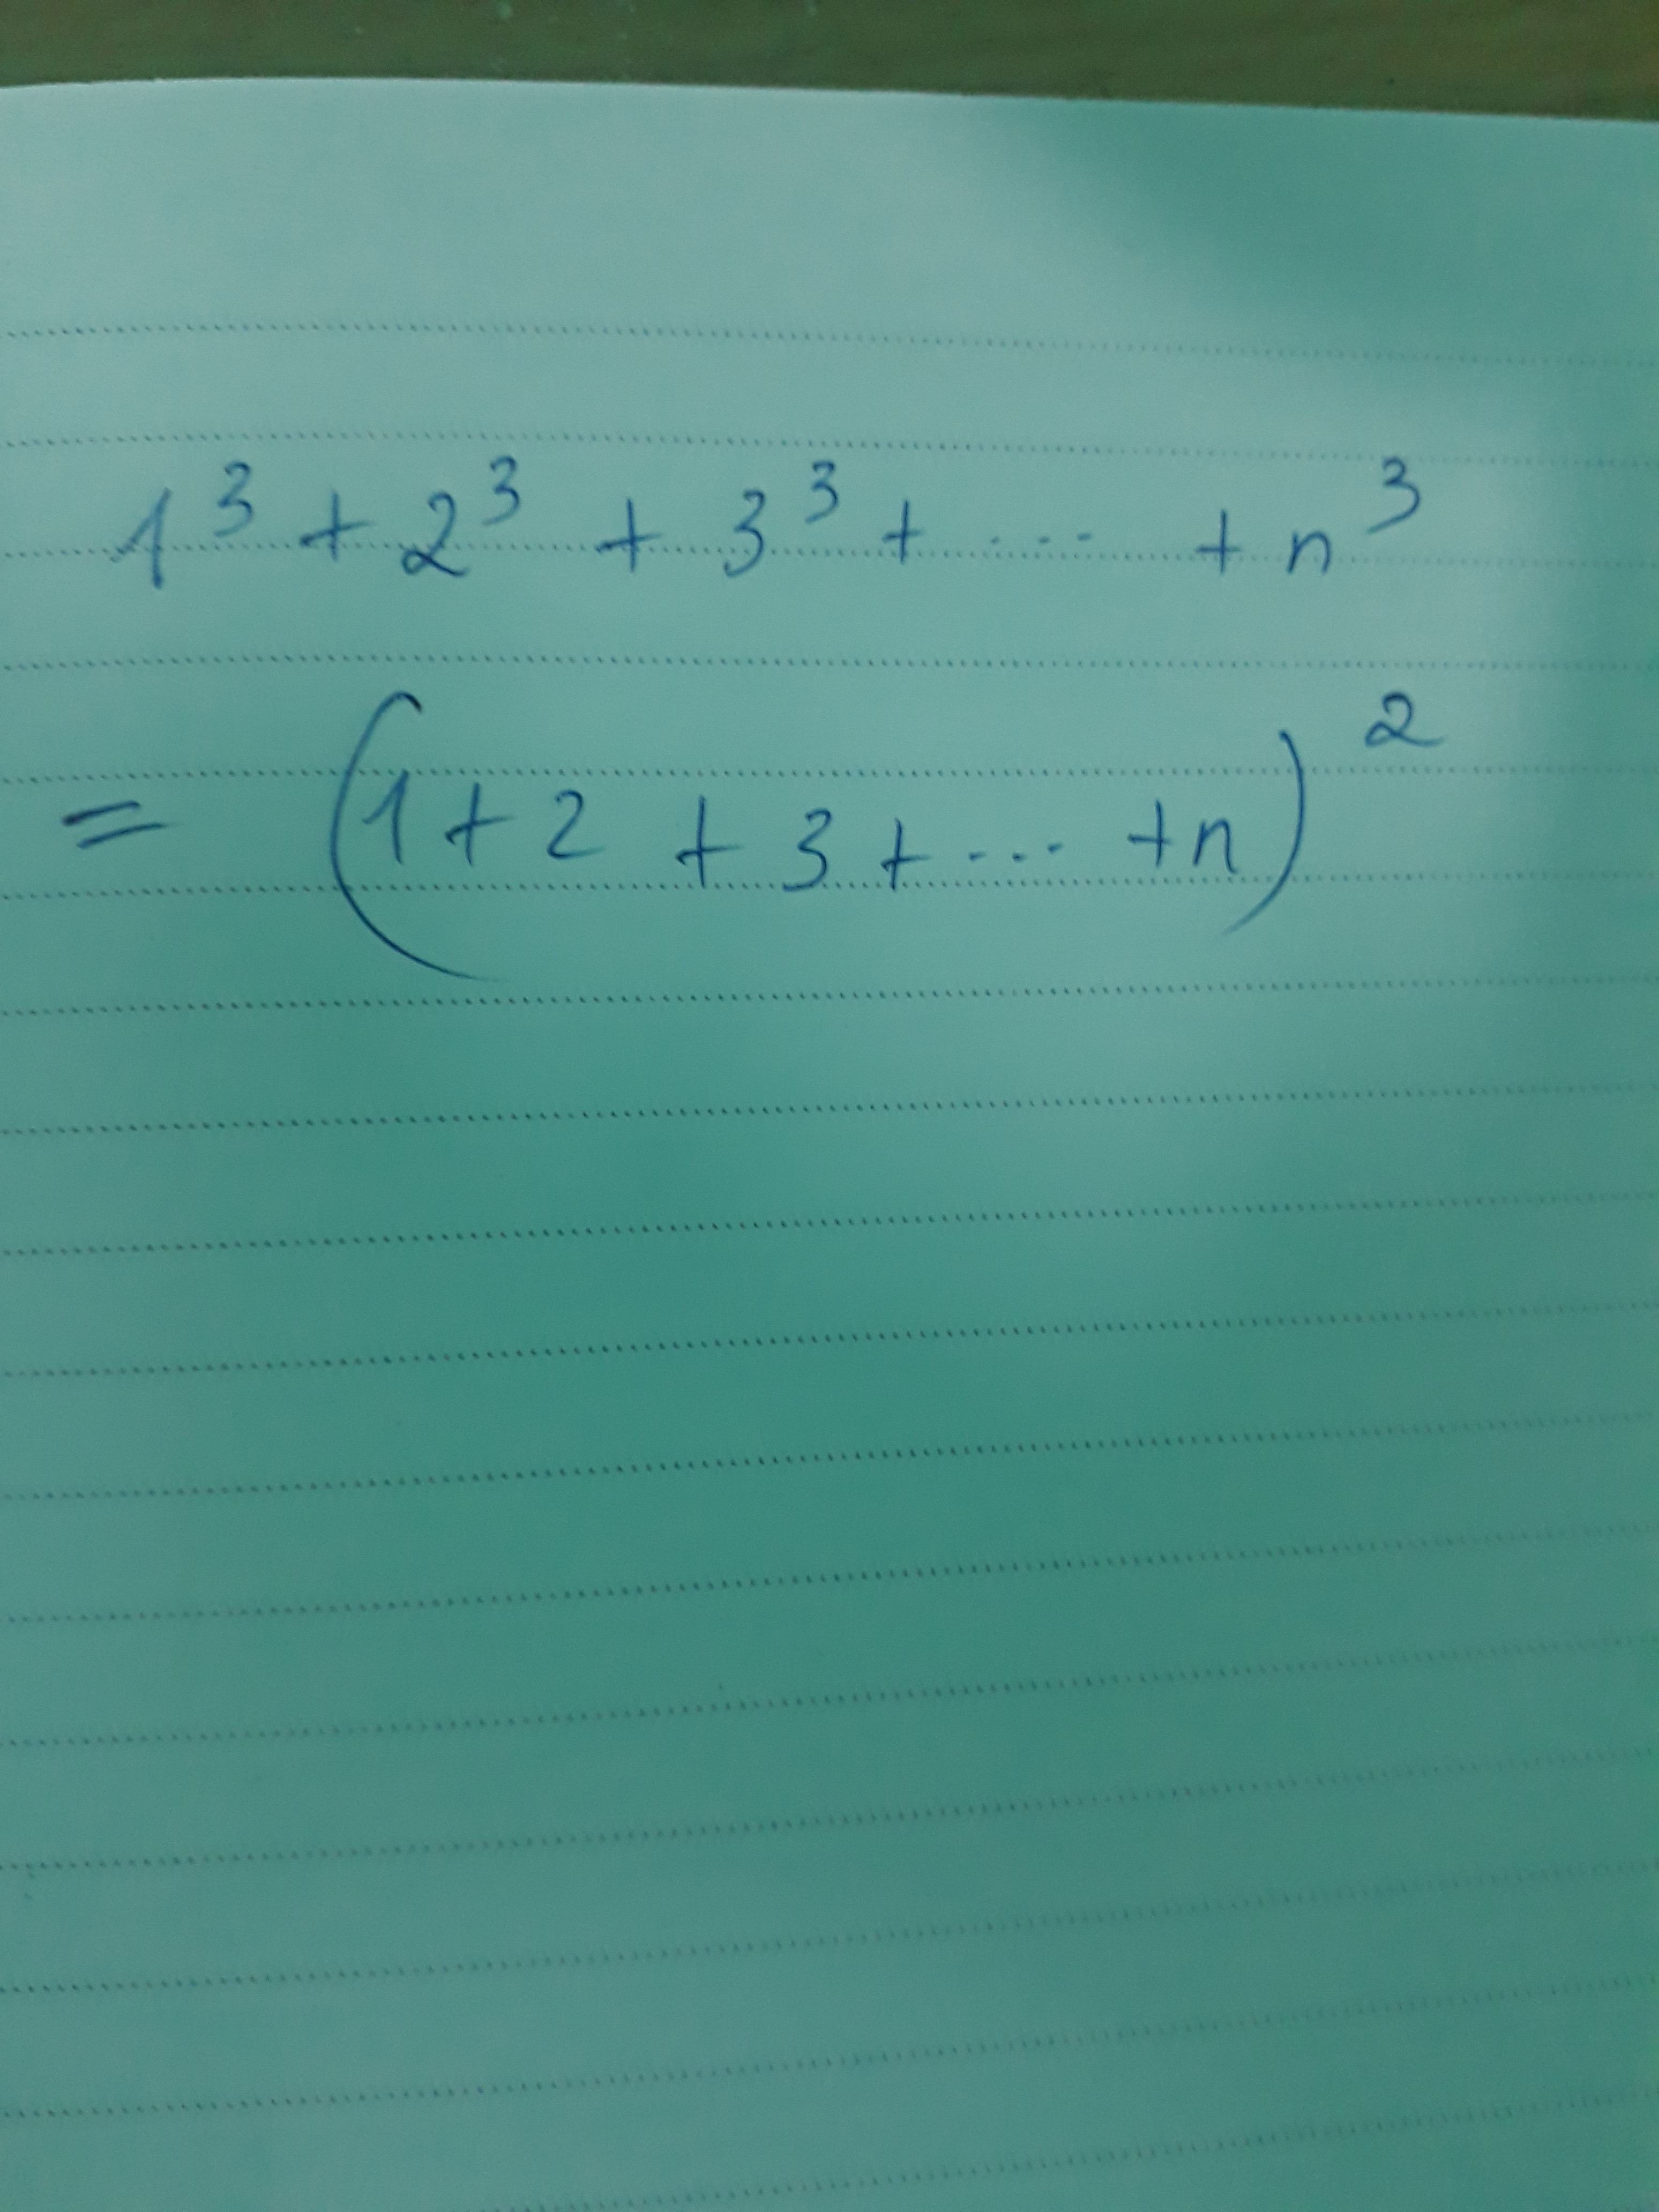 1³ + 2³ + 3³ + ... + n³
= (1 + 2 + 3 + ... + n)²